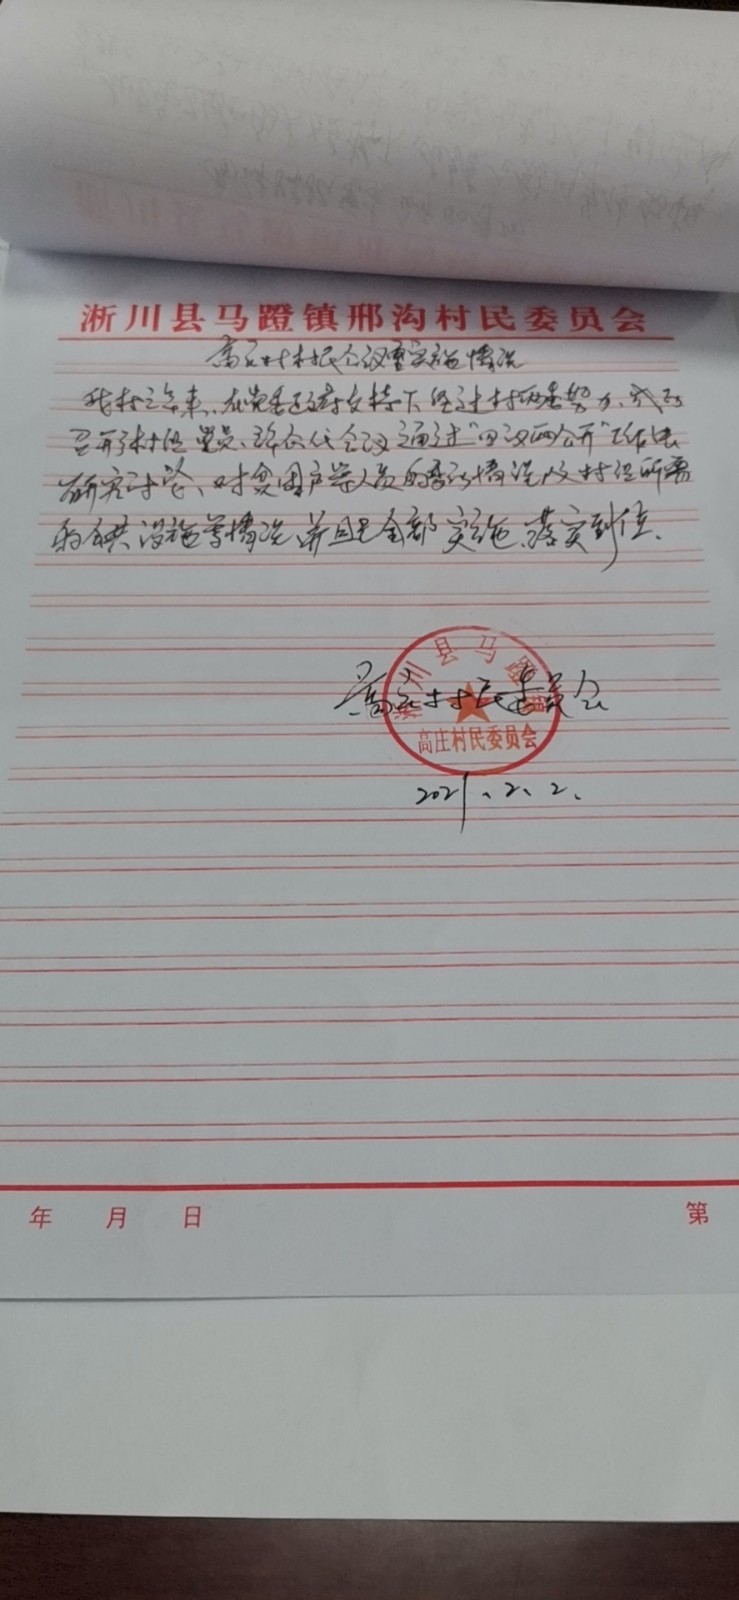 淅川县马蹬镇邢沟村民委员会
高庄村村民会议实施情况
我村三年来、在党委政府支持下经过村两委努力、
召开了村组党员、群众代会议通过“四议两公开”工作法
研究讨论、对贫困户等人员的 情况及村组所需
的公共设施等情况、并且已全部实施、落实到位.
淅川县马蹬镇
高庄村村民委员会
高庄村民委员会
2021.2.2.
年 月 日 第